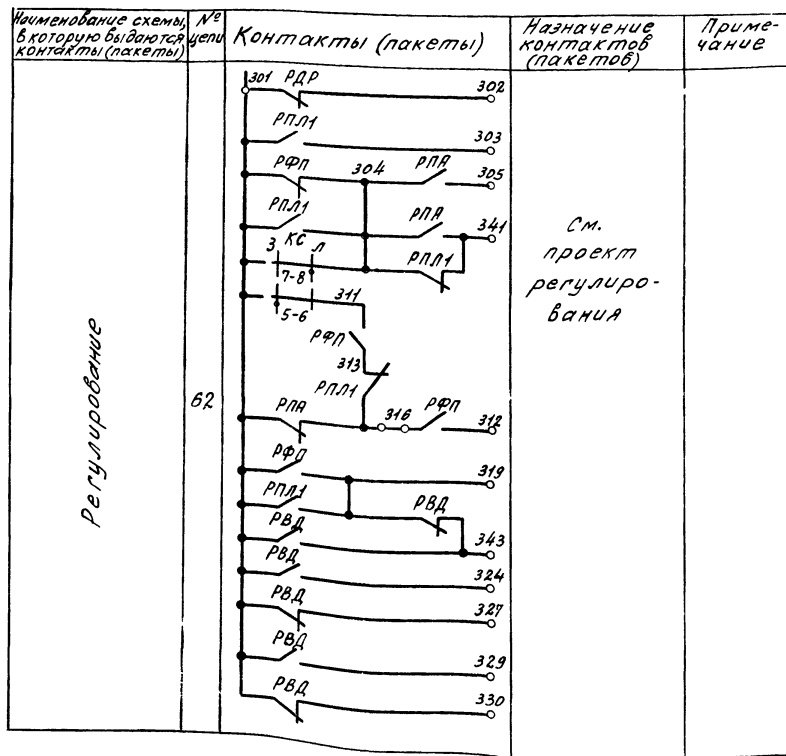 Наименование схемы,
в которую выдаются
контакты (пакеты)
№
цепи
Контакты (пакеты)
Назначение
контактов
(пакетов)
Приме-
чание
Регулирование
62
301 РДР 302
РПЛ1 303
РФП 304 РПА 305
РПЛ1 РПА 341
З КС Л РПЛ1
7-8
311
5-6
РФП
313
РПЛ1
РПА 316 РФП 312
РФП 319
РПЛ1 РВД
РВД 343
РВД 324
РВД 327
РВД 329
РВД 330
См.
проект
регулиро-
вания